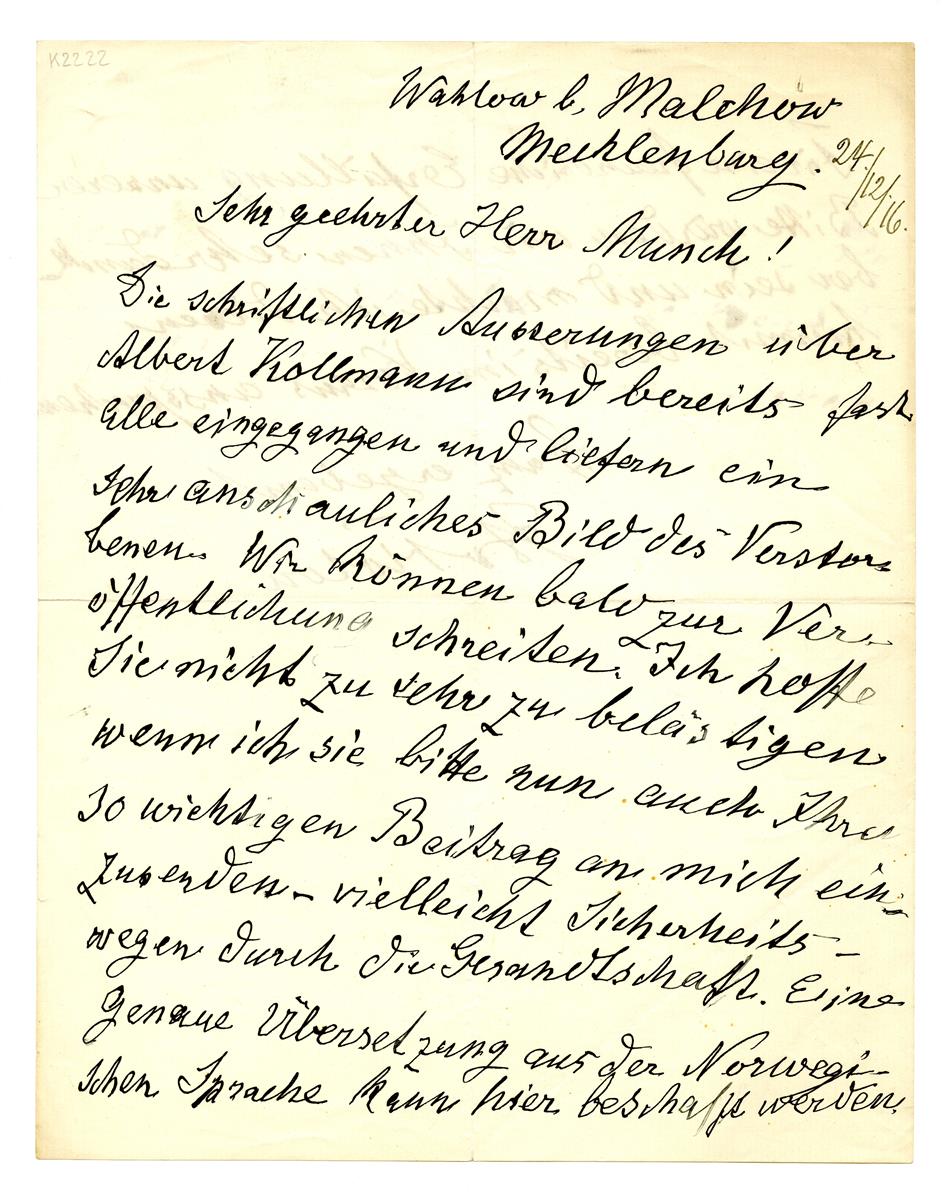 K2222
Wahlow b. Malchow
Mecklenburg. 24/12/16.
Sehr geehrter Herr Munch!
Die schriftlichen Äusserungen über
Albert Kollmann sind bereits fast
alle eingegangen und liefern ein
sehr anschauliches Bild des Verstor-
benen. Wir können bald zur Ver-
öffentlichung schreiten. Ich hoffe
Sie nicht zu sehr zu belästigen
wenn ich sie bitte nun auch Ihren
so wichtigen Beitrag an mich ein-
zusenden – vielleicht Sicherheits-
wegen durch die Gesandtschaft. Eine
genaue Übersetzung aus der Norwegi-
schen Sprache kann hier beschafft werden.